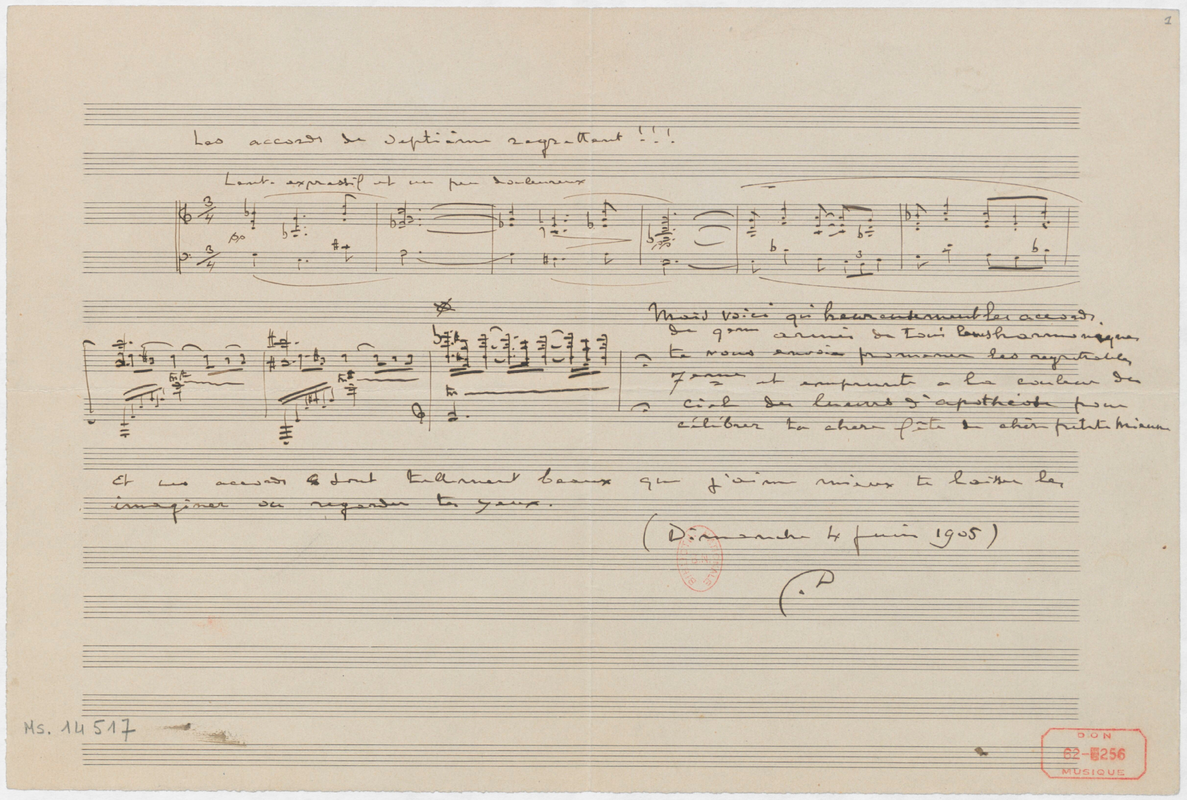 1
Les accords de septième regrettent !!!
Lent. expressif et un peu douloureux
3/4
pp
3/4
3
Mais voici qu'heureusement les accords
de 9em armés de tous leurs harmoniques
te vous envoie promener les regrettables
7emes et emprunte a la couleur du
ciel des lueurs d'apothéose pour
célébrer ta chere fête de chère petite Mienne
Et ces accords sont tellement beaux que j'aime mieux te laisser les
imaginer ou regarder tes yeux.
(Dimanche 4 Juin 1905)
Ms. 14517
DON
62-256
MUSIQUE